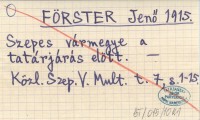 FÖRSTER Jenő 1915.
Szepes vármegye a
tatárjárás előtt. —
Közl. Szep. V. Mult. t. 7, s. 1-15.